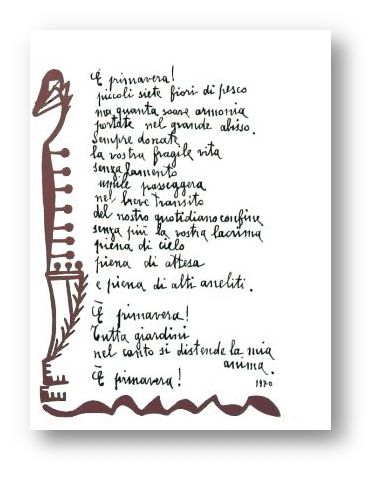 È primavera!
piccoli siete fiori di pesco
ma quanta soave armonia
portate nel grande abisso.
sempre donate
la vostra fragile vita
senza lamento
umile passeggera
nel breve transito
del nostro quotidiano confine
senza più la vostra lacrima
piena di cielo
piena di attesa
e piena di alti aneliti.
È primavera!
Tutta giardini
nel canto si distende la mia
anima.
È primavera!
1970